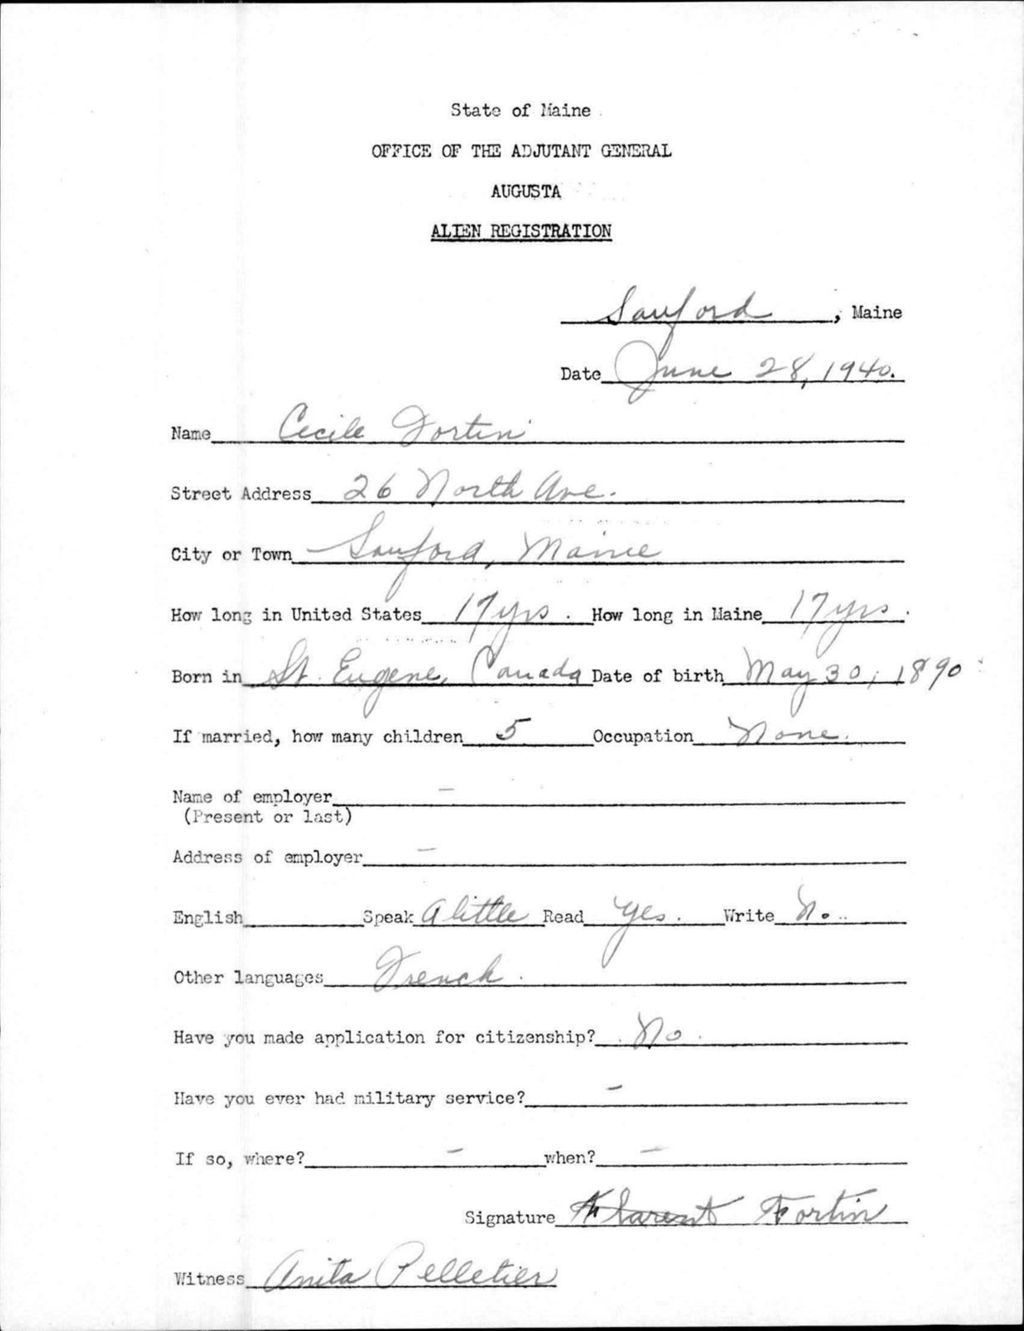 State of Maine
OFFICE OF THE ADJUTANT GENERAL
AUGUSTA
ALIEN REGISTRATION
Sanford, Maine
Date June 28, 1940.
Name Cecile Fortin
Street Address 26 North Ave.
City or Town Sanford, Maine
How long in United States 17 yrs. How long in Maine 17 yrs.
Born in St. Eugene, Canada Date of birth May 30, 1890
If married, how many children 5 Occupation None.
Name of employer -
(Present or last)
Address of employer -
English Speak A little Read Yes. Write No.
Other languages French.
Have you made application for citizenship? No.
Have you ever had military service? -
If so, where? - when? -
Signature Fortin
Witness Anita Pelletier